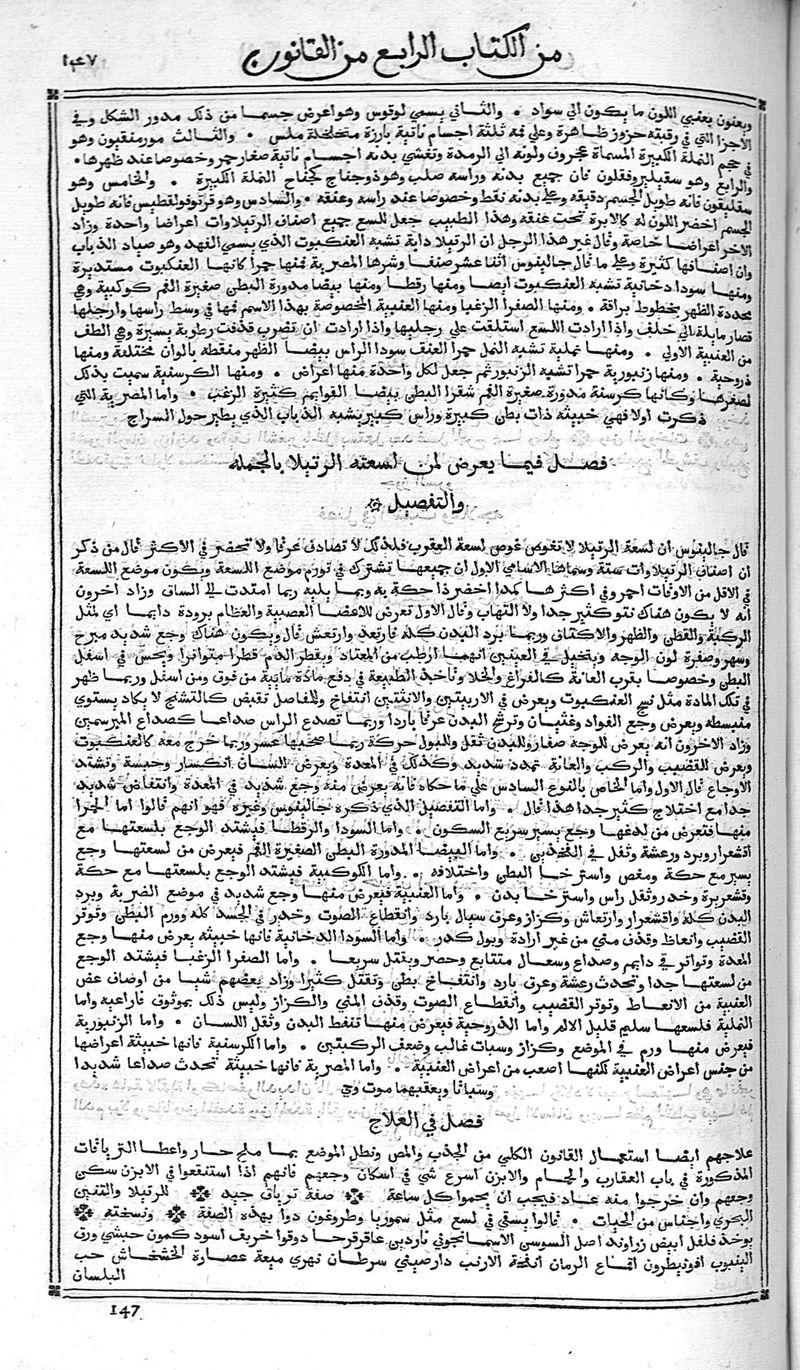 من الكتاب الرابع من القانون
١٤٧
ويعنون بعنبي اللون ما يكون الي سواد ٠ والثاني يسمي لوقوس وهو اعرض جسما من ذلك مدور الشكل وفي
الاجزا التي في رقبته حزوز ظاهرة وعلي فمه ثلثة اجسام ناتية بارزة متخلخلة ملس ٠ والثالث مورمنقيون وهو
في حجم النملة الكبيرة المسماة عجروف ولونه الي الرمدة وتغشي بدنه اجسام ناتية صغار حمر وخصوصا عند ظهرها ٠
والرابع وهو سقيليروفغلون فان جميع بدنه وراسه صلب وهو ذو جناح كجناح النملة الكبيرة ٠ والخامس وهو
سقليقون فانه طويل الجسم دقيقه وعلي بدنه نقط وخصوصا عند راسه وعنقه ٠ والسادس وهو قرنوفولقطيس فانه طويل
الجسم اخضر اللون له كالابرة تحت عنقه وهذا الطبيب جعل للسع جميع اصناف الرتيلاوات اعراضا واحدة وزاد
الاخر اعراضا خاصة وقال غير هذا الرجل ان الرتيلا دابة تشبه العنكبوت الذي يسمي الفهد وهو صياد الذباب
وان اصنافها كثيرة وعلي ما قال جالينوس اثنا عشر صنفا وشرها المصرية فمنها حمرا كانها العنكبوت مستديرة
ومنها سودا دخانية تشبه العنكبوت ايضا ومنها رقطا ومنها بيضا مدورة البطن صغيرة الفم كوكبية وهي
محددة الظهر بخطوط براقة ٠ ومنها الصفرا الزغبا ومنها العنبية المخصوصة بهذا الاسم فمها في وسط راسها وارجلها
قصار مايلة الي خلف واذا ارادت اللسع استلقت علي رجليها واذا ارادت ان تضرب قذفت رطوبة يسيرة وهي الطف
من العنبية الاولي ٠ ومنها نملية تشبه النمل حمرا العنق سودا الراس بيضا الظهر منقطة بالوان مختلفة ومنها
ذروحية ٠ ومنها زنبورية حمرا تشبه الزنبور ثم جعل لكل واحدة منها اعراض ٠ ومنها الكرسنية سميت بذلك
لصغرها وكانها كرسنة مدورة صغيرة الفم شقرا البطن بيضا القوايم كثيرة الزغب ٠ واما المصرية التي
ذكرت اولا فهي خبيثة ذات بطن كبيرة وراس كبير يشبه الذباب الذي يطير حول السراج
فصل فيما يعرض لمن لسعته الرتيلا بالجملة
والتفصيل ۞
قال جالينوس ان لسعة الرتيلا لا تغوص غوص لسعة العقرب فلذلك لا تصادف عرقا ولا تحضر في الاكثر قال من ذكر
ان اصناف الرتيلاوات ستة وسماها الاسامي الاول ان جميعها تشترك في تورم موضع اللسعة ويكون موضع اللسعة
في الاقل من الاوقات احمر وفي اكثرها كمدا اخضر ذا حكة به وبما يليه ربما امتدت الي الساق وزاد اخرون
انه لا يكون هناك نتو كثير جدا ولا التهاب وقال الاول تعرض للاعضا العصبية والعظام برودة دايما اي لمثل
الركبة والقطن والظهر والاكتاف وربما برد البدن كله فارتعد وارتعش قال ويكون هناك وجع شديد مبرح
وسهر وصفرة لون الوجه ويتخيل في العينين انهما ارطب من المعتاد ويقطر الدم قطرا متواترا ويحس في اسفل
البطن وخصوصا بقرب العانة كالفراغ والخلا وتاخذ الطبيعة في دفع مادة ماىية من فوق ومن اسفل وربما ظهر
في تلك المادة مثل نسج العنكبوت ويعرض في الاربيتين والانثيين انتفاخ وللمفاصل تقبض كالتشنج لا يكاد يستوي
منبسطه ويعرض وجع الفواد وغثيان وترشح البدن عرقا باردا وربما تصدع الراس صداعا كصداع المبرسمين
وزاد الاخرون انه يعرض للوجه صفار وللبدن ثقل وللبول حركة ربما صحبها عسر وربما خرج معه كالعنكبوت
ويعرض للقضيب والركب والعانة تمدد شديد وكذلك في المعدة ويعرض للسان انكسار وحبسة وتشتد
الاوجاع قال الاول واما الخاص بالنوع السادس علي ما حكاه فانه يعرض منه وجع شديد في المعدة وانتفاض شديد
جدا مع اختلاج كثير جدا هذا قال ٠ واما التفصيل الذي ذكره جالينوس وغيره فهو انهم قالوا اما الحمرا
منها فتعرض من لدغها وجع يسير سريع السكون ٠ واما السودا والرقطا فيشتد الوجع بلسعتها مع
اقشعرار وبرد ورعشة وثقل في الفخذين ٠ واما البيضا المدورة البطن الصغيرة الفم فيعرض من لسعتها وجع
يسير مع حكة ومغص واسترخا البطن واختلافه ٠ واما الكوكبية فيشتد الوجع بلسعتها مع حكة
وقشعريرة وخدر وثقل راس واسترخا بدن ٠ واما العنبية فيعرض منها وجع شديد في موضع الضربة وبرد
البدن كله واقشعرار وارتعاش وكزاز وعرق سيال بارد وانقطاع الصوت وخدر في الجسد كله وورم البطن وتوتر
القضيب وانعاظ وقذف مني من غير ارادة وبول كدر ٠ واما السودا الدخانية فانها خبيثة يعرض منها وجع
المعدة وتواتر قي دايم وصداع وسعال متتابع وحصر ويقتل سريعا ٠ واما الصفرا الزغبا فيشتد الوجع
من لسعتها جدا وتحدث رعشة وعرق بارد وانتفاخ بطن وتقتل كثيرا وزاد بعضهم شيا من اوصاف عض
العنبية من الانعاظ وتوتر القضيب وانقطاع الصوت وقذف المني والكزاز وليس ذلك بموثوق فاراعيه واما
النملية فلسعها سليم قليل الالم واما الذروحية فيعرض منها تنفط البدن وثقل اللسان ٠ واما الزنبورية
فيعرض منها ورم في الموضع وكزاز وسبات غالب وضعف الركبتين ٠ واما الكرسنية فانها خبيثة اعراضها
من جنس اعراض العنبية لكنها اصعب من اعراض العنبية ٠ واما المصرية فانها خبيثة تحدث صداعا شديدا
وسباتا ويعقبهما موت وحي
فصل في العلاج
علاجهم ايضا استعمال القانون الكلي من الجذب والمص ونطل الموضع بما ملح حار واعطا الترياقات
المذكورة في باب العقارب والحمام والابزن اسرع شي في اسكان وجعهم فانهم اذا استنقعوا في الابزن سكن
وجعهم وان خرجوا منه عاد فيجب ان يحموا كل ساعة ۞ صفة ترياق جيد ۞ للرتيلا والتنين
البحري واجناس من الحيات ٠ قالوا يسقي في لسع مثل سموريا وطروغون دوا بهذه الصفة ۞ ونسخته ۞
يوخذ فلفل ابيض زراوند اصل السوسن الاسمانجوني ناردين عاقرقرحا دوقوا خريف اسود كمون حبشي ورق
الينبوب افونيطرون اقماع الرمان انفحة الارنب دارصيني سرطان نهري ميعة عصارة الخشخاش حب
البلسان
147